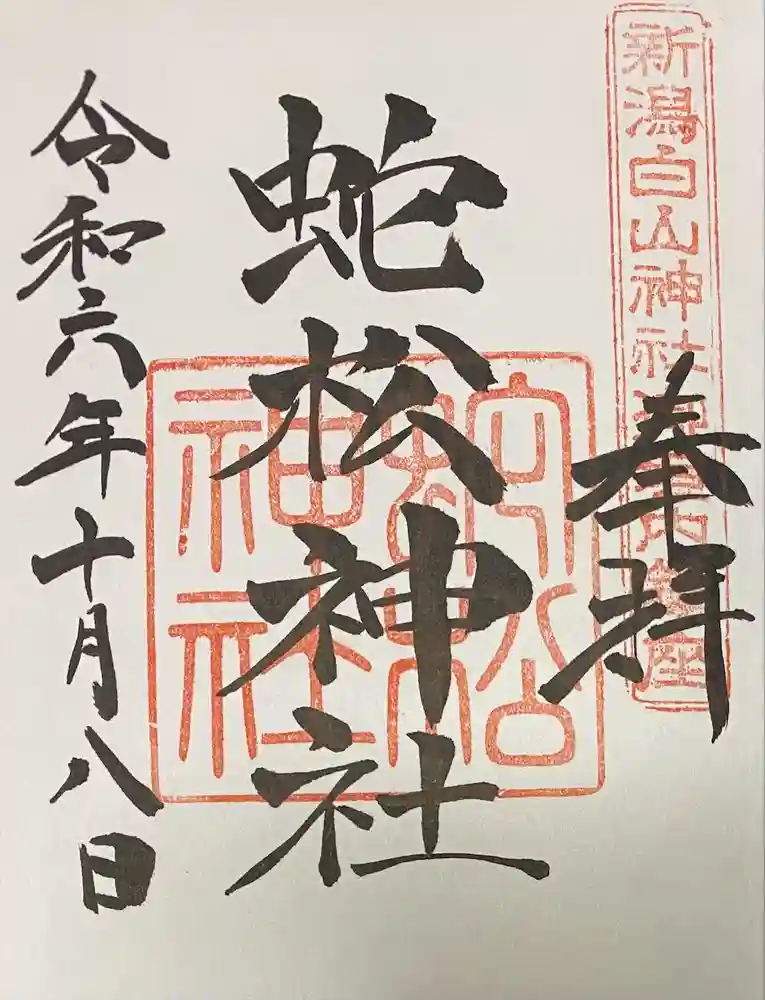 新潟白山神社境内鎮座
奉拝
蛇松神社
蛇松神社
令和六年十月八日